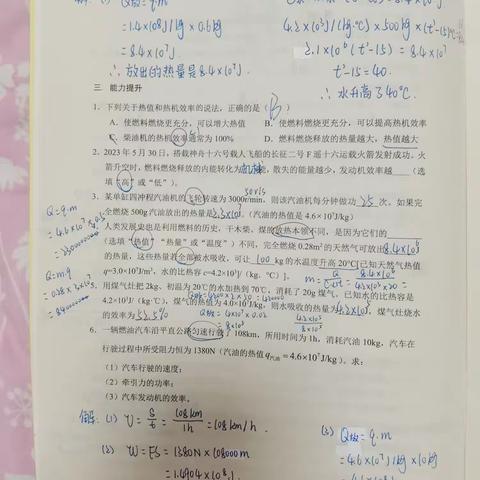 Q放 = q·m
= 1.4×10⁸J/kg × 0.6kg
= 8.4×10⁷J
∴ 放出的热量是8.4×10⁷J.
4.2×10³J/(kg·℃)×500kg×(t'-15)℃
2.1×10⁶(t'-15) = 8.4×10⁷
t'-15=40
∴ 水升高了40℃.
三 能力提升
1. 下列关于热值和热机效率的说法,正确的是( B )
A. 使燃料燃烧更充分,可以增大热值 B. 使燃料燃烧更充分,可以提高热机效率
C. 柴油机的热机效率通常为100% D. 燃料燃烧释放的热量越大,热值越大
2. 2023年5月30日,搭载神舟十六号载人飞船的长征二号F遥十六运载火箭发射成功。火
箭升空时,燃料燃烧释放的内能转化为机械能,散失的能量越少,发动机效率越 (选
填“高”或“低”)。
50r/s
3. 某单缸四冲程汽油机的飞轮转速为3000r/min,则该汽油机每分钟做功 25 次。如果完
全燃烧500g汽油放出的热量是 (汽油的热值是4.6×10⁷J/kg)
人类发展史也是利用燃料的历史,干木柴、煤的放热本领不同,是因为它们的
(选填“热值”“热量”或“温度”)不同,完全燃烧0.28m³的天然气可放出8.4×10⁶J
的热量,这些热量若全部被水吸收,可让 100 kg的水温度升高20℃[已知天然气热值
q=3.0×10⁷J/m³,水的比热容c=4.2×10³J/(kg·℃)]。
用煤气灶把2kg、初温为20℃的水加热到70℃,消耗了20g煤气。已知水的比热容是
4.2×10³J/(kg·℃),煤气的热值为4.0×10⁷J/kg,则水吸收的热量为4.2×10⁵J,煤气灶烧水
的效率为52.5%
6. 一辆燃油汽车沿平直公路匀速行驶了108km,所用时间为1h,消耗汽油10kg,汽车在
行驶过程中所受阻力恒为1380N(汽油的热值q汽油=4.6×10⁷J/kg)。求:
(1)汽车行驶的速度;
(2)牵引力的功率;
(3)汽车发动机的效率。
Q=q·m
Q=mq
(1) V = S/t = 108km/1h = 108km/h.
(2) W = FS = 1380N×108000m
= 1.4904×10⁸J.
(3) Q放 = q·m
= 4.6×10⁷J/kg×10kg